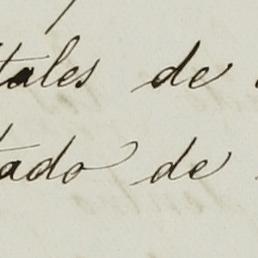 tales de
tado de